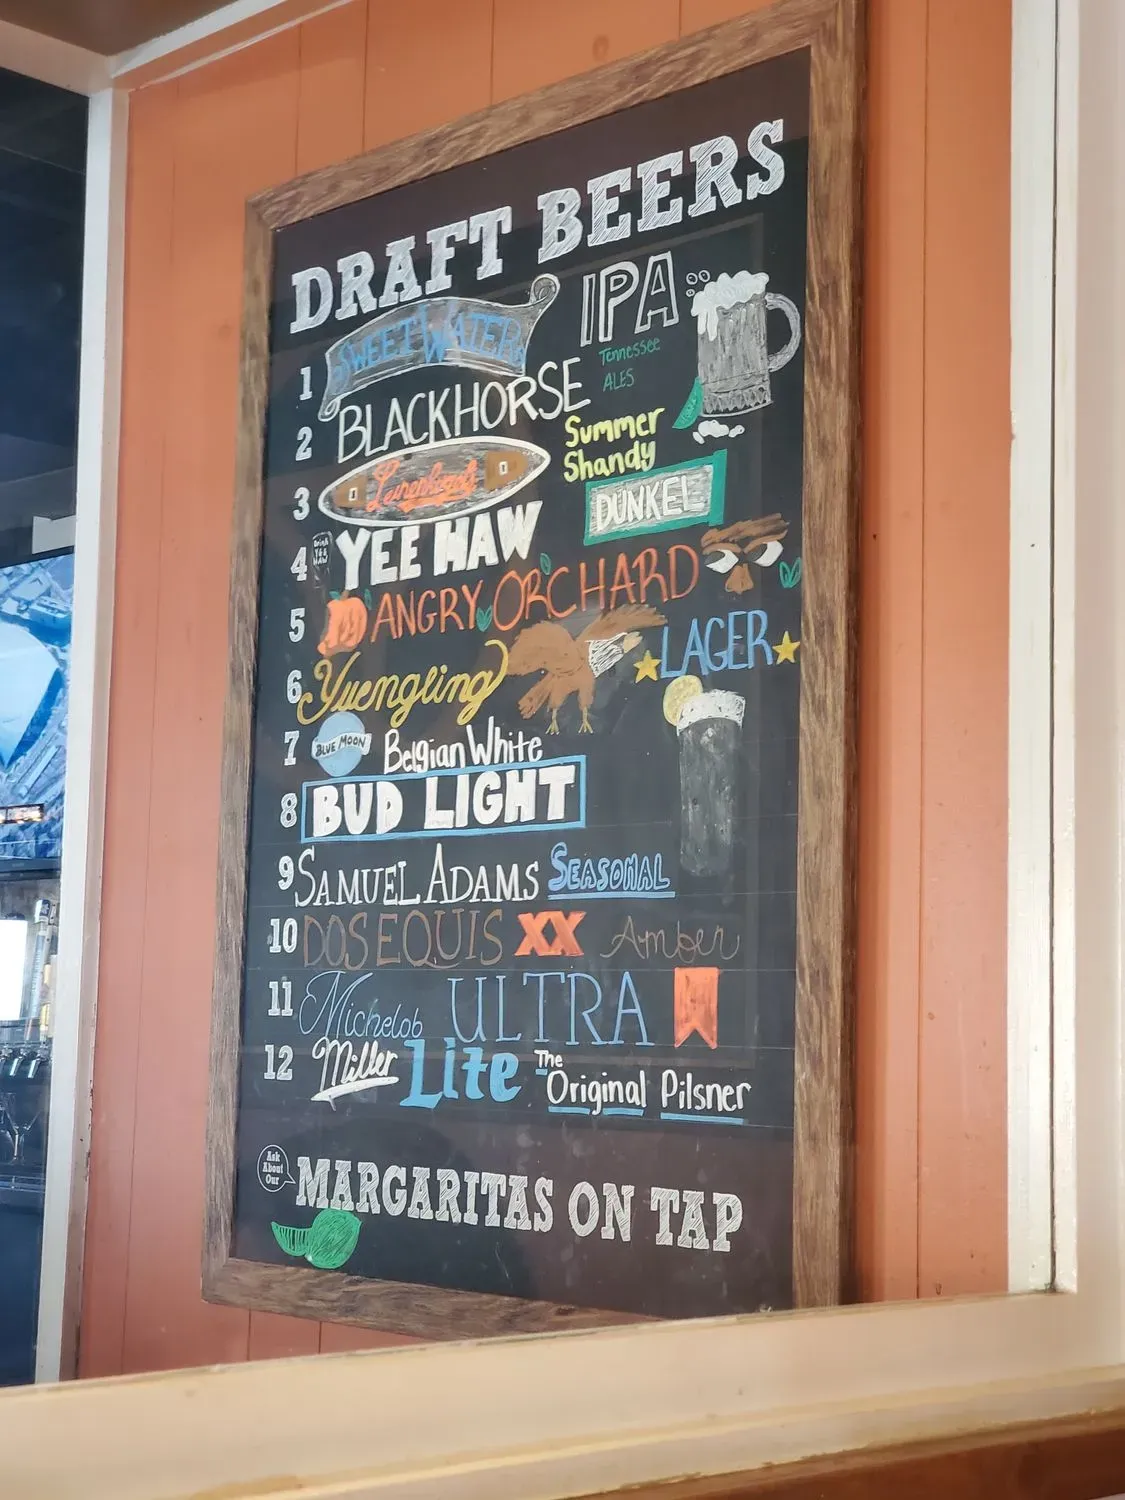 DRAFT BEERS
1 SWEETWATER IPA
2 BLACKHORSE Tennessee ALES
3 Leinenkugel's Summer Shandy
4 Drink YEE HAW YEE HAW DUNKEL
5 ANGRY ORCHARD
6 Yuengling LAGER
7 BLUE MOON Belgian White
8 BUD LIGHT
9 SAMUEL ADAMS SEASONAL
10 DOS EQUIS XX Amber
11 Michelob ULTRA
12 Miller Lite The Original Pilsner
Ask About Our MARGARITAS ON TAP